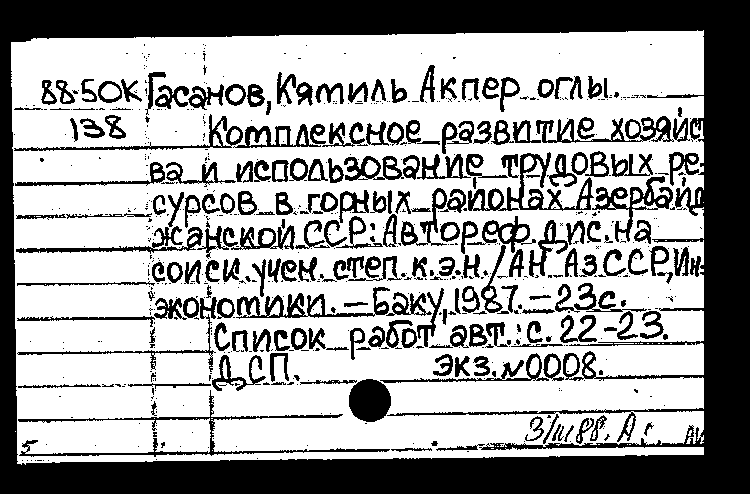 88-50К Гасанов, Кямиль Акпер оглы.
138 Комплексное развитие хозяйст
ва и использование трудовых ре-
сурсов в горных районах Азербайд
жанской ССР: Автореф. дис. на
соиск. учен. степ. к.э.н. / АН АзССР, Ин-
экономики. — Баку, 1987. — 23 с.
Список работ авт.: с. 22-23.
ДСП. экз. №0008.
3/III 88.
5